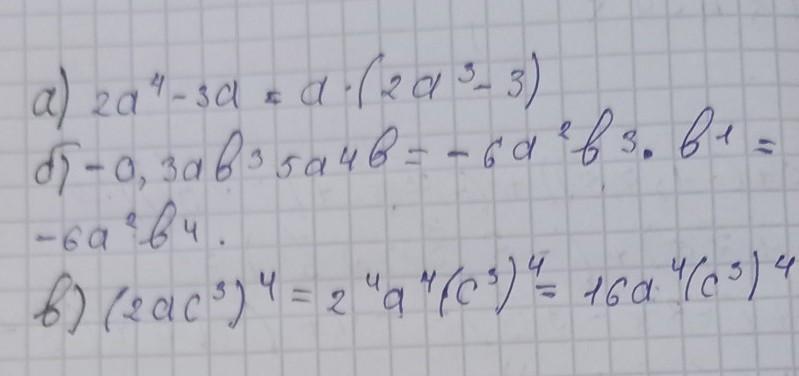 а) 2a⁴ - 3a = a · (2a³ - 3)
б) - 0,3ab³ 5a4b = - 6a²b³ · b¹ =
- 6a²b⁴.
в) (2ac³)⁴ = 2⁴a⁴(c³)⁴ = 16a⁴(c³)⁴